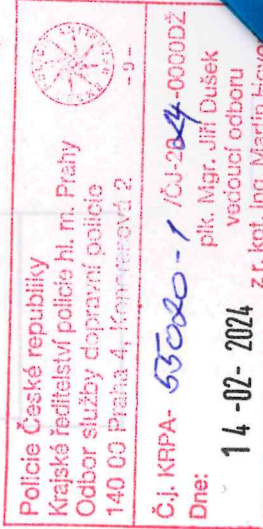 Policie České republiky
Krajské ředitelství policie hl. m. Prahy
Odbor služby dopravní policie
140 00 Praha 4, 2
- 9 -
Č.j. KRPA- 55020-1 /ČJ-2024-0000DŽ
plk. Mgr. Jiří Dušek
vedoucí odboru
z r. kpt. Ing. Martin
Dne: 14 -02- 2024